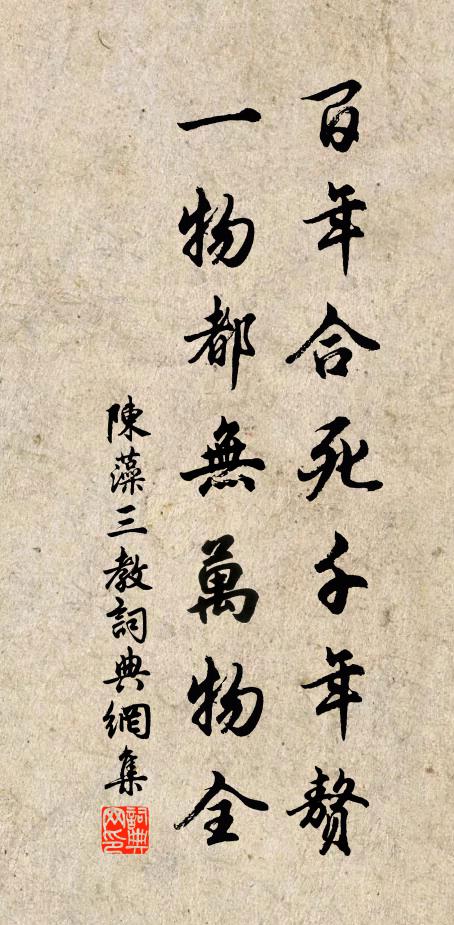 百年合死千年贅
一物都無萬物全
陳藻三教詞典網集
詞典網印